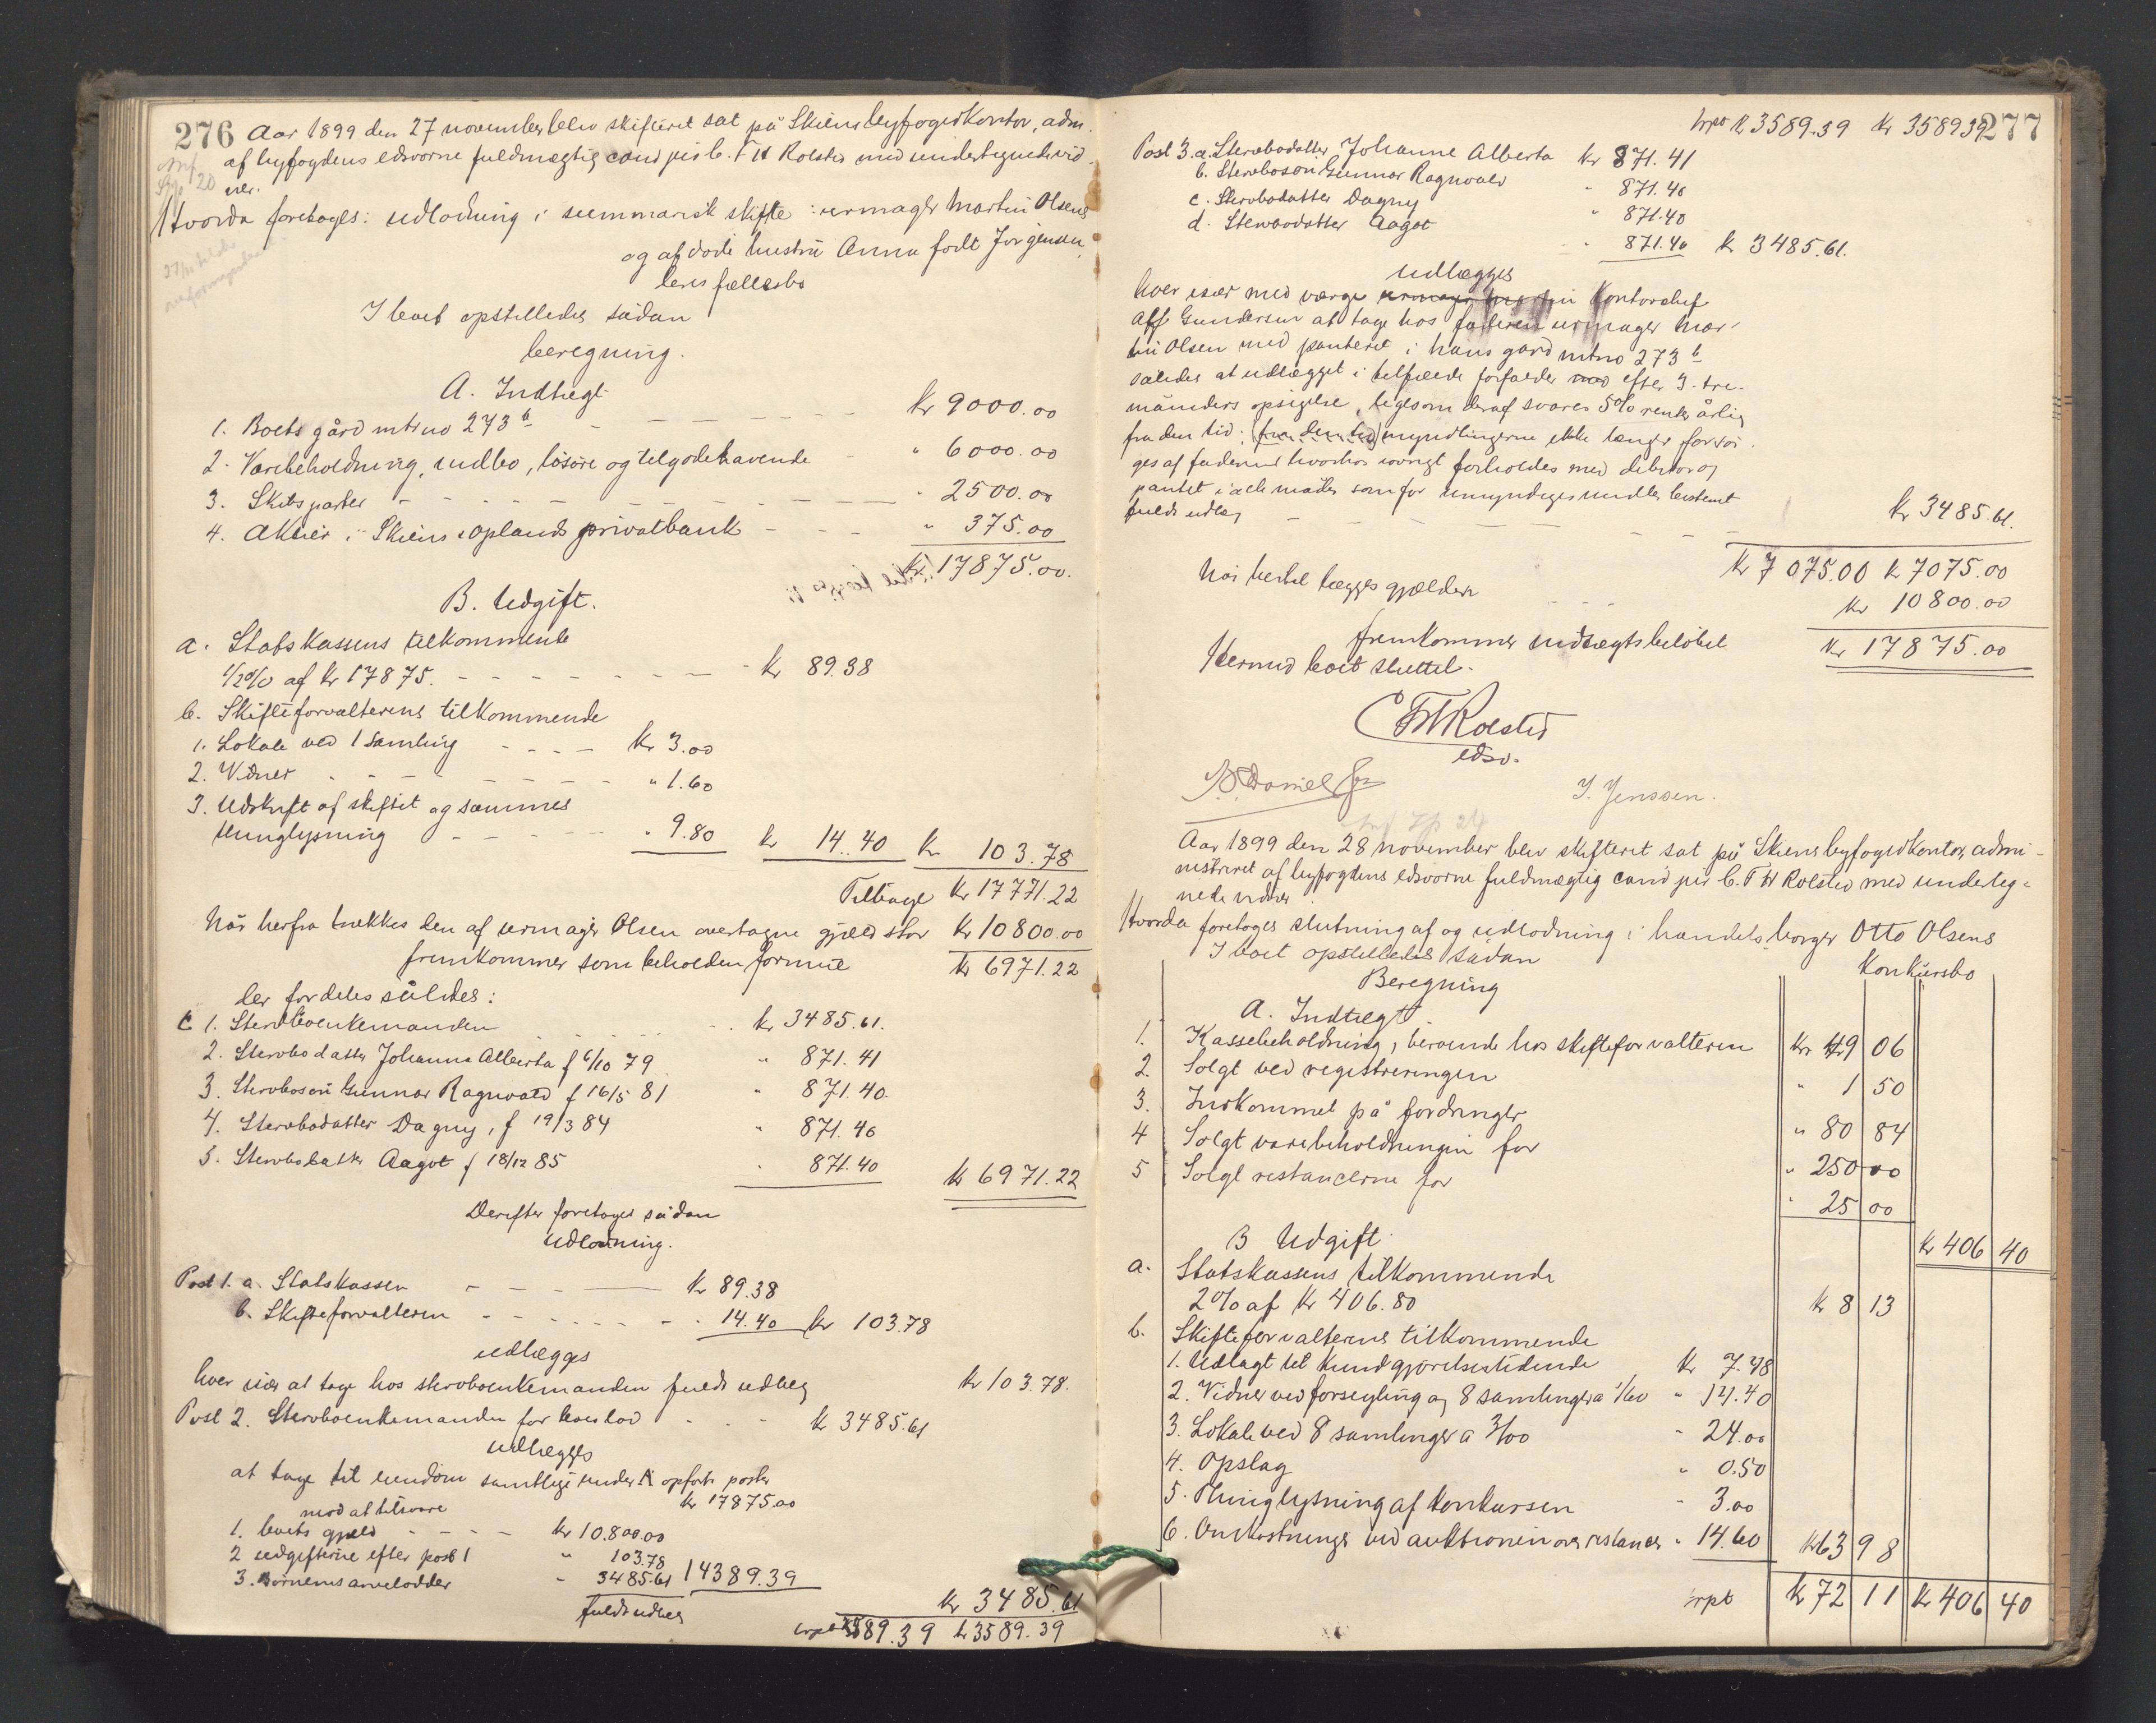 276 Aar 1899 den 27 november blev skifteret sat på Skiens byfogedkontor, adm.
af byfogdens edsvorne fuldmægtig cand jur C. F W Rolsted med undertegnede vid
ner.
Hvorda foretoges: udlodning i summarisk skifte: urmager Martin Olsens
og afdøde hustru Anna født Jørgensen,
deres fællesbo
I boet opstilledes sådan
beregning.
A. Indtægt
1. Boets gård mtrno 273 b - - - - - - kr 9000.00
2. Varebeholdning, indbo, løsøre og tilgodehavende - " 6000.00
3. Skibsparter - - - - - - - - " 2500.00
4. Aktier i Skiens oplands privatbank - - - " 375.00
kr. 17875.00.
B. Udgift.
a. Statskassens tilkommende
1/2 % af kr 17875. - - - - - - - kr 89.38
b. Skifteforvalterens tilkommende
1. Lokale ved 1 samling - - - - kr 3.00
2. Vidner - - - - - - - " 1.60
3. Udskrift af skiftet og sammes
thinglysning - - - - - " 9.80 kr 14.40 kr 103.78
Tilbage kr 17771.22
Når herfra trækkes den af urmager Olsen overtagne gjæld stor kr 10800.00
fremkommer som beholden formue kr 6971.22
der fordeles således:
C 1. Sterboenkemanden - - - - kr 3485.61.
2. Stervbodatter Johanne Alberta f 6/10 79 " 871.41
3. Stervbosøn Gunnar Ragnvald f 16/5 81 " 871.40.
4. Stervbodatter Dagny, f 19/3 84 " 871.40
5. Stervbodatter Aagot f 18/12 85 " 871.40 kr 6971.22
Derefter foretoges sådan
Udlodning.
Post 1. a. Statskassen - - - - kr 89.38
b. Skifteforvalteren - - - - - - 14.40 kr 103.78
udlægges
hver især at tage hos stervboenkemanden fuldt udlæg kr 103.78.
Post 2. Stervboenkemanden for boeslod - - - kr 3485.61
udlægges
at tage til eiendom samtlige under A opførte poster
kr 17875.00
mod at tilsvare
1. boets gjæld - - - - kr 10.800.00
2 udgifterne efter post 1 " 103.78
3. Børnenes arvelodder " 3485.61 14389.39
fuldt udlæg kr 3485.61
trpt 3589.39 kr 3589.39
trpt kr 3589.39 kr 3589 39 277
Post 3. a. Stervbodatter Johanne Alberta kr 871.41
b. Stervbosøn Gunnar Ragnvald " 871.40
c. Stervbodatter Dagny " 871.40
d. Stervbodatter Aagot " 871.40 kr 3485.61.
udlægges
hver især med værge kontorchef
Alf Gundersen at tage hos faderen urmager Mar-
tin Olsen med panteret i hans gård mtno 273 b
således at udlægget i tilfælde forfalder efter 3 tre-
måneders opsigelse, ligesom deraf svares 5% rente årlig
fra den tid: (fra den tid) myndlingerne ikke længer forsør-
ges af faderen hvorhos iøvrigt forholdes med debitor og
pantet i alle måder som for umyndiges midler bestemt
fuldt udlæg - - - - - - - kr 3485.61.
kr 7075.00 kr 7075.00
Når hertil lægges gjælden - - - kr 10800.00
fremkommer indtægtsbeløbet kr 17875.00
Hermed boet sluttet.
C FW Rolsted
edsv.
Daniel I. Jenssen.
Aar 1899 den 28 november blev skifteret sat på Skiens byfogedkontor, admi-
nistreret af byfogdens edsvorne fuldmægtig cand jur C. F W Rolsted med underteg-
nede vidner.
Hvorda foretoges slutning af og udlodning i handelsborger Otto Olsens
konkursbo
I boet opstilledes sådan
Beregning
A. Indtægt
1. Kassebeholdning, beroende hos skifteforvalteren kr 49 06
2. Solgt ved registreringen " 1 50
3. Indkommet på fordringer " 80 84
4 Solgt varebeholdningen for " 250 00
5 Solgt restancerne for " 25 00
kr 406 40
B Udgift
a. Statskassens tilkommende
2% af kr 406.80 kr 8 13
b. Skifteforvalterens tilkommende
1. Udlagt til kundgjørelsestidende kr 7.48
2. Vidner ved forsegling og 8 samlinger a 1/60 " 14.40
3. Lokale ved 8 samlinger a 3/00 " 24.00
4. Opslag " 0.50
5. Thinglysning af konkursen " 3.00
6. Omkostninger ved auktionen over restancer " 14.60 kr 63 98
trpt kr 72 11 kr 406 40